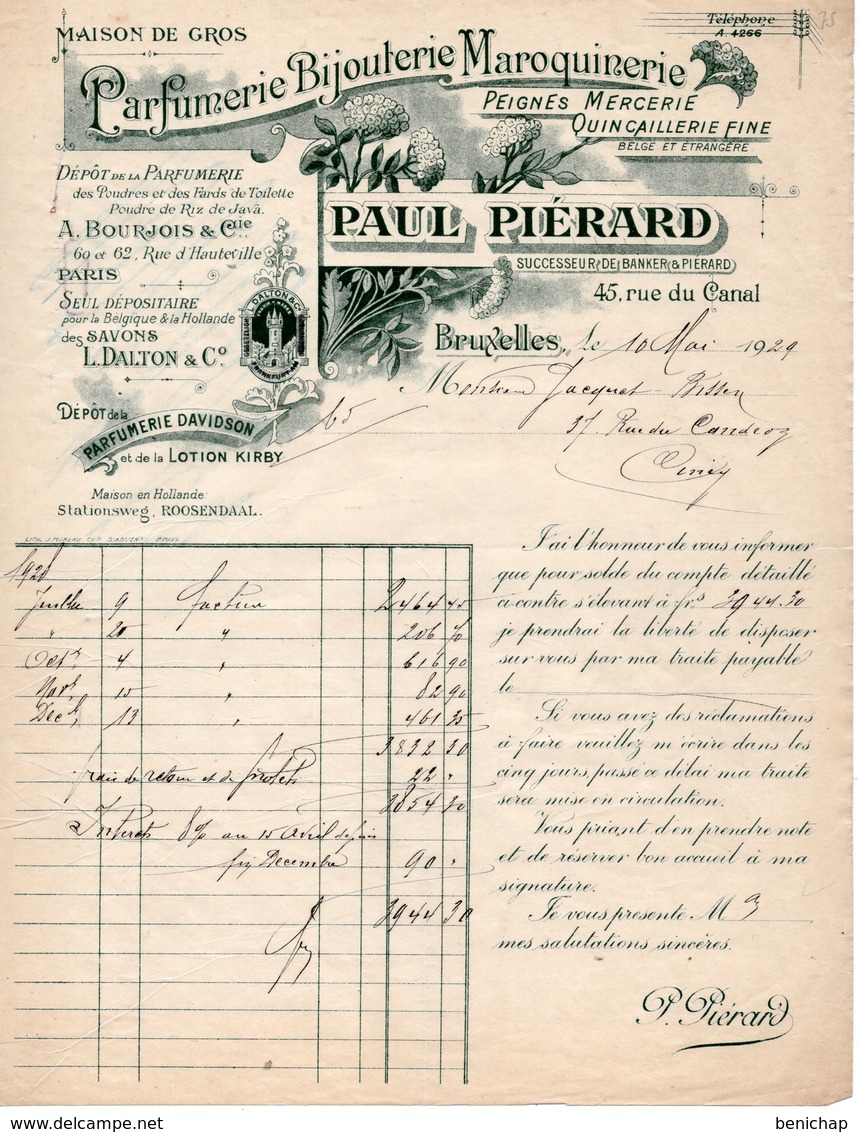 75
MAISON DE GROS
Téléphone
A. 4266
Parfumerie Bijouterie Maroquinerie
PEIGNES MERCERIE
QUINCAILLERIE FINE
BELGE ET ÉTRANGÈRE
DÉPÔT DE LA PARFUMERIE
des Poudres et des Fards de Toilette
Poudre de Riz de Java.
A. BOURJOIS & Cie
60 et 62, Rue d'Hauteville
PARIS
PAUL PIÉRARD
SUCCESSEUR DE BANKER & PIÉRARD
45, rue du Canal
SEUL DÉPOSITAIRE
pour la Belgique & la Hollande
des SAVONS
L. DALTON & Co.
L. DALTON & Co
FRANKFURT A/M
Bruxelles, le 10 Mai 1929
Monsieur Jacquet-
37 Rue du
Ciney
65
DÉPÔT de la
PARFUMERIE DAVIDSON
et de la LOTION KIRBY
Maison en Hollande:
Stationsweg, ROOSENDAAL.
LITH. J. MOREAU CHée D'ANVERS BRUX.
1928
Juillet 9 facture 2464 45
" 20 " 206 70
Octr 4 " 616 90
Nov. 10 " 82 90
Decb 13 " 461 35
3832 30
frais de retour et de protets 22 "
3854 30
Interets 8% au 10 Avril depuis
fin Decembre 90 "
3944 30
J'ai l'honneur de vous informer
que pour solde du compte détaillé
ci-contre s'élevant à frs 3944.30
je prendrai la liberté de disposer
sur vous par ma traite payable
le
Si vous avez des réclamations
à faire veuillez m'écrire dans les
cinq jours, passé ce délai ma traite
sera mise en circulation.
Vous priant d'en prendre note
et de réserver bon accueil à ma
signature.
Je vous présente M
mes salutations sincères.
P. Piérard
www.delcampe.net
benichap